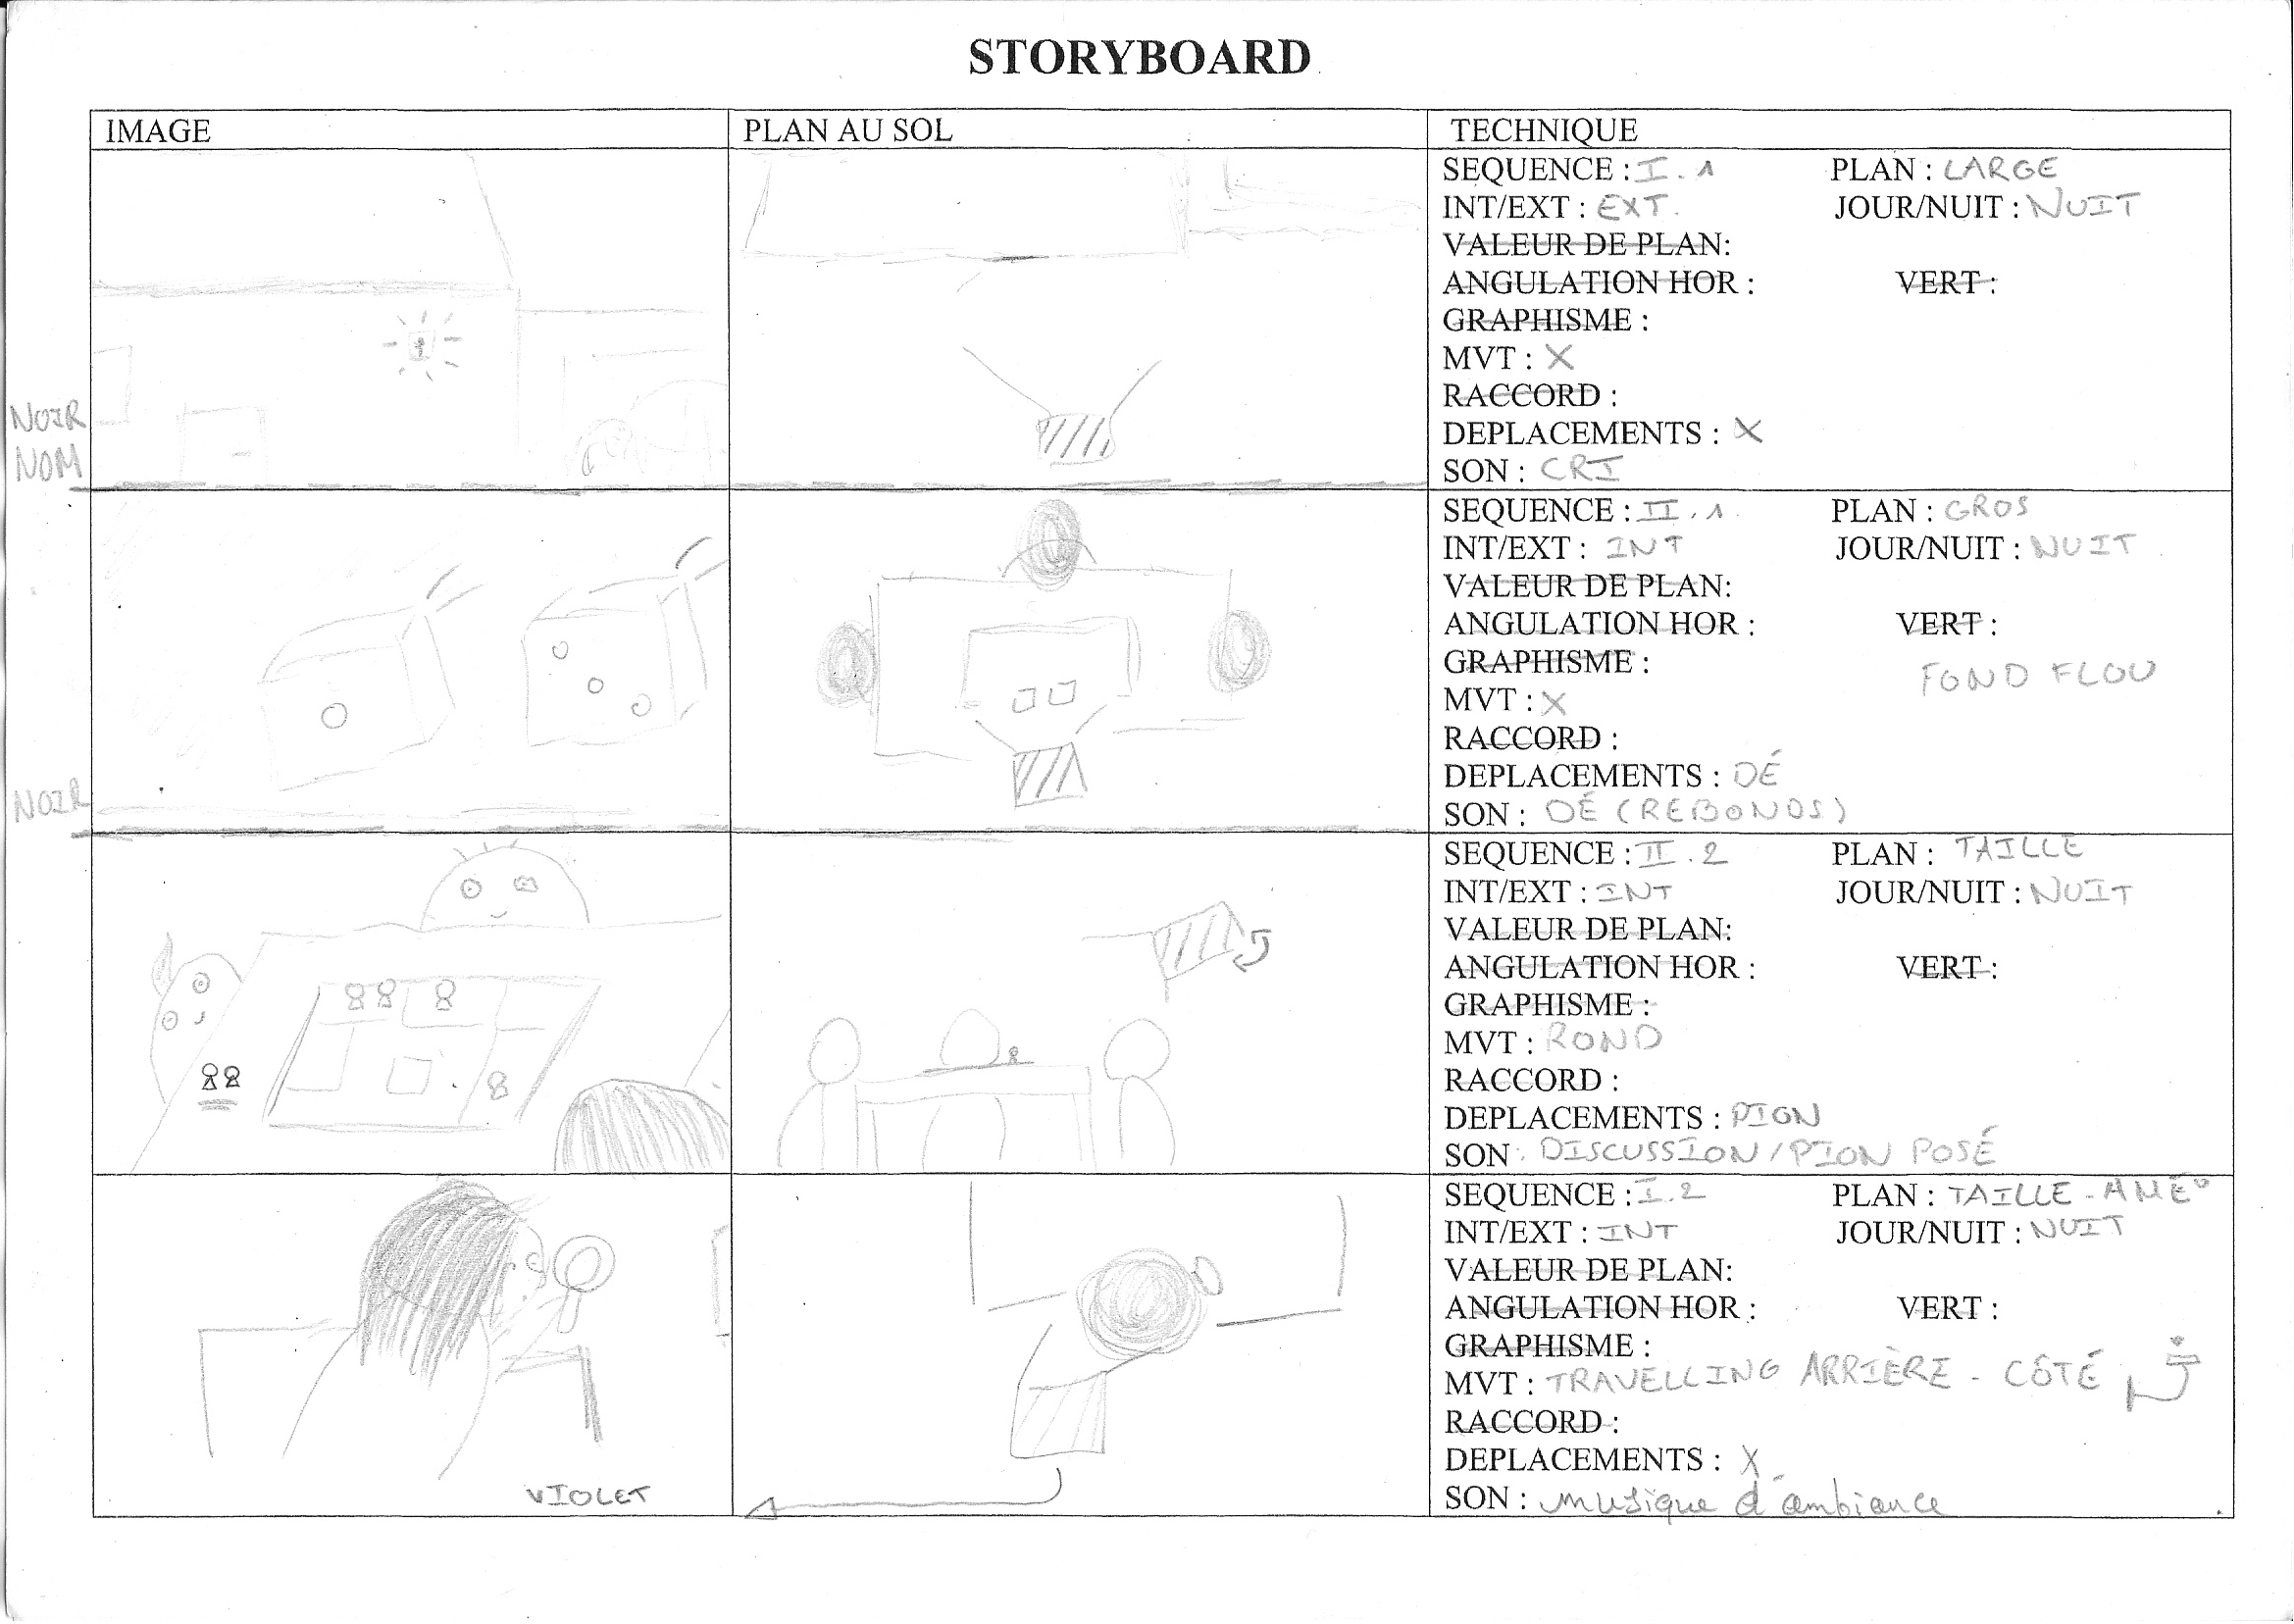 STORYBOARD
IMAGE PLAN AU SOL TECHNIQUE
SEQUENCE : I.1 PLAN : LARGE
INT/EXT : EXT. JOUR/NUIT : NUIT
VALEUR DE PLAN:
ANGULATION HOR : VERT :
GRAPHISME :
MVT : X
RACCORD :
DEPLACEMENTS : X
SON : CRI
NOIR
NOM
SEQUENCE : II.1 PLAN : GROS
INT/EXT : INT JOUR/NUIT : NUIT
VALEUR DE PLAN:
ANGULATION HOR : VERT :
GRAPHISME :
FOND FLOU
MVT : X
RACCORD :
DEPLACEMENTS : DÉ
SON : DÉ (REBONDS)
NOIR
SEQUENCE : II.2 PLAN : TAILLE
INT/EXT : INT JOUR/NUIT : NUIT
VALEUR DE PLAN:
ANGULATION HOR : VERT :
GRAPHISME :
MVT : ROND
RACCORD :
DEPLACEMENTS : PION
SON : DISCUSSION/PION POSÉ
SEQUENCE : I.2 PLAN : TAILLE -
INT/EXT : INT JOUR/NUIT : NUIT
VALEUR DE PLAN:
ANGULATION HOR : VERT :
GRAPHISME :
MVT : TRAVELLING ARRIÈRE - CÔTÉ
RACCORD :
DEPLACEMENTS : X
SON : musique d'ambiance
VIOLET